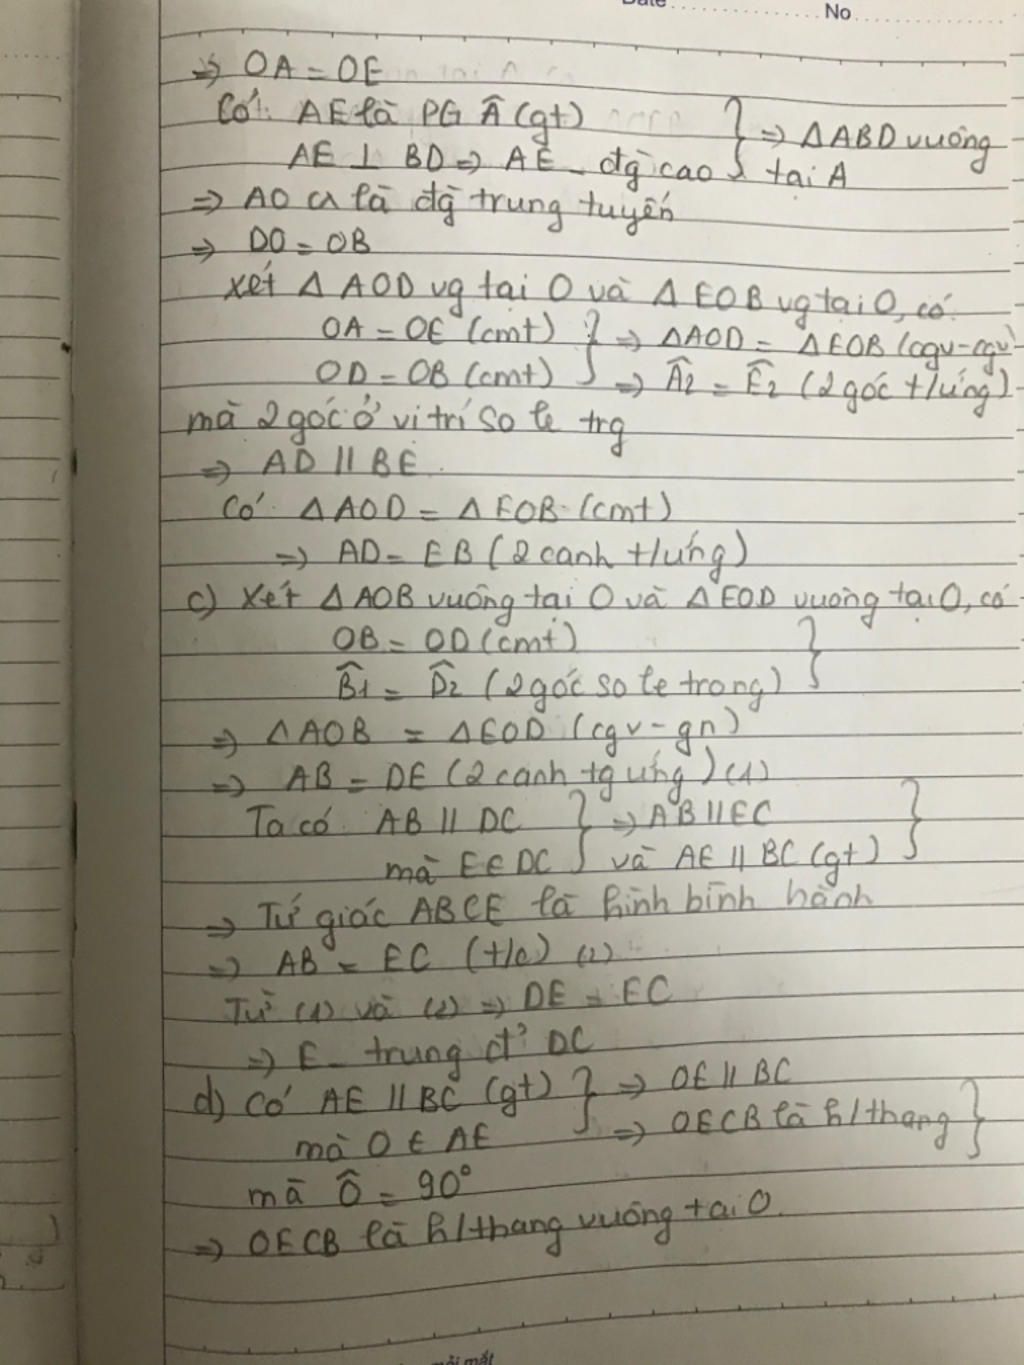 Date No
⇒ OA = OE
Có: AE là PG Â (gt) } ⇒ ΔABD vuông
AE ⊥ BD ⇒ AE _ đg̀ cao } tại A
⇒ AO là đg̀ trung tuyến
⇒ DO = OB
Xét Δ AOD vg tại O và Δ EOB vg tại O, có:
OA = OE (cmt) } ⇒ ΔAOD = ΔEOB (cgv-cgv)
OD = OB (cmt) } ⇒ Â2 = Ê2 (2 góc t/ứng)
mà 2 góc ở vị trí so le trg
⇒ AD // BE.
Có ΔAOD = ΔEOB (cmt)
⇒ AD = EB (2 cạnh t/ứng)
c) Xét ΔAOB vuông tại O và ΔEOD vuông tại O, có
OB = OD (cmt) }
B̂1 = D̂2 (2 góc so le trong) }
⇒ ΔAOB = ΔEOD (cgv-gn)
⇒ AB = DE (2 cạnh tg ứng) (1)
Ta có AB // DC } ⇒ AB // EC }
mà E ∈ DC } và AE // BC (gt) }
⇒ Tứ giác ABCE là hình bình hành
⇒ AB = EC (t/c) (2)
Từ (1) và (2) ⇒ DE = EC
⇒ E _ trung đ' DC
d) Có AE // BC (gt) } ⇒ OE // BC
mà O ∈ AE } ⇒ OECB là h/thang }
mà Ô = 90°
⇒ OECB là h/thang vuông tại O.